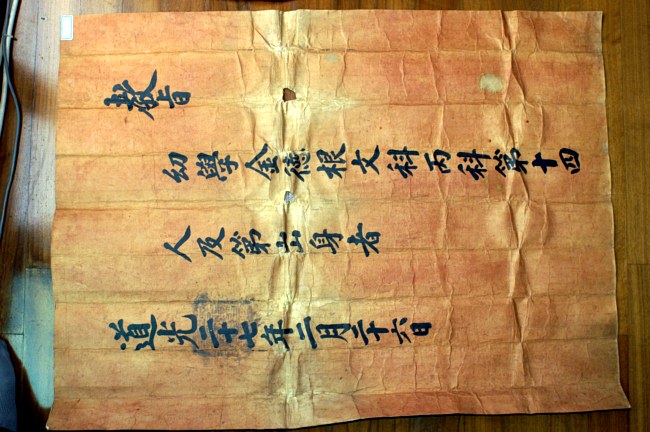 敎旨
幼學金德根文科丙科第十四
人及第出身者
道光二十七年二月二十六日